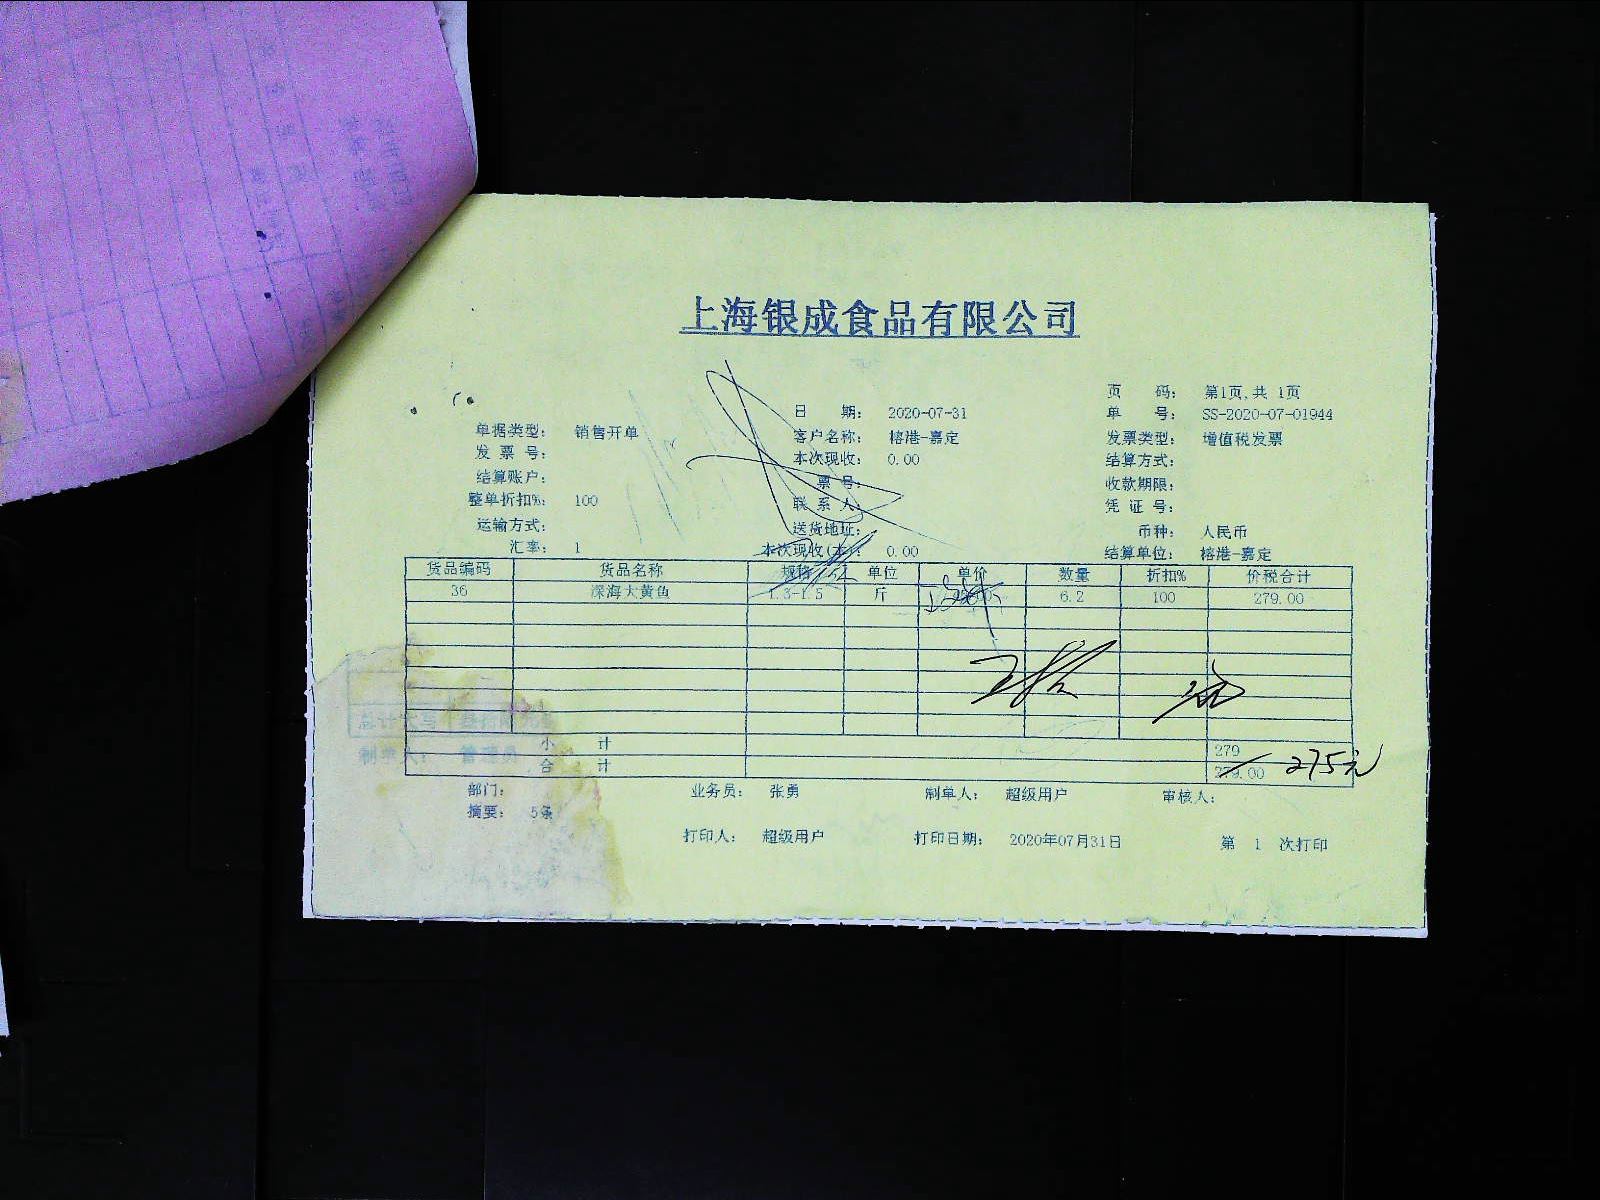 上海银成食品有限公司
页 码： 第1页,共 1页
日 期： 2020-07-31 单 号： SS-2020-07-01944
单据类型： 销售开单 客户名称： 榕港-嘉定 发票类型： 增值税发票
发 票 号： 本次现收： 0.00 结算方式：
结算账户： 票号： 收款期限：
整单折扣%： 100 联 系 人： 凭 证 号：
运输方式： 送货地址： 币种： 人民币
汇率： 1 本次现收(本)： 0.00 结算单位： 榕港-嘉定
货品编码 货品名称 规格 单位 单价 数量 折扣% 价税合计
36 深海大黄鱼 1.3-1.5 斤 6.2 100 279.00
小 计 279
合 计 279.00 275元
总计大写
制单人： 管理员
部门： 业务员： 张勇 制单人： 超级用户 审核人：
摘要： 5条
打印人： 超级用户 打印日期： 2020年07月31日 第 1 次打印